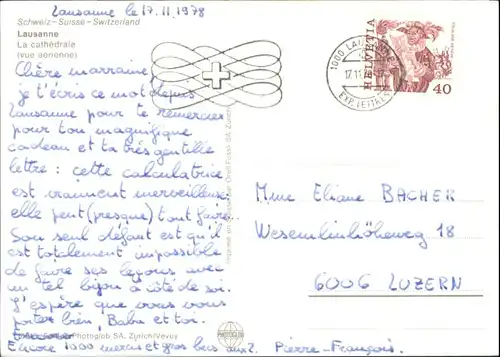 Lausanne le 17.11.1978
Schweiz - Suisse - Switzerland
Lausanne
La cathédrale
(vue aérienne)
Chère marraine,
je t'écris ce mot depuis
Lausanne pour te remercier
pour ton magnifique
cadeau et ta très gentille
lettre : cette calculatrice
est vraiment merveilleuse
elle peut (presque) tout faire.
Son seul défaut est qu'il
est totalement impossible
de faire ses leçons avec
un tel bijou à côté de soi.
J'espère que vous vous
portez bien, Babu et toi.
Photoglob SA, Zürich/Vevey
Encore 1000 mercis et gros becs aux 2. Pierre-François.
1000 LAUSANNE
17.11.
EXP. LETTRES
HELVETIA
40
Mme Eliane BACHER
Wesemlinhöheweg 18
6006 LUZERN